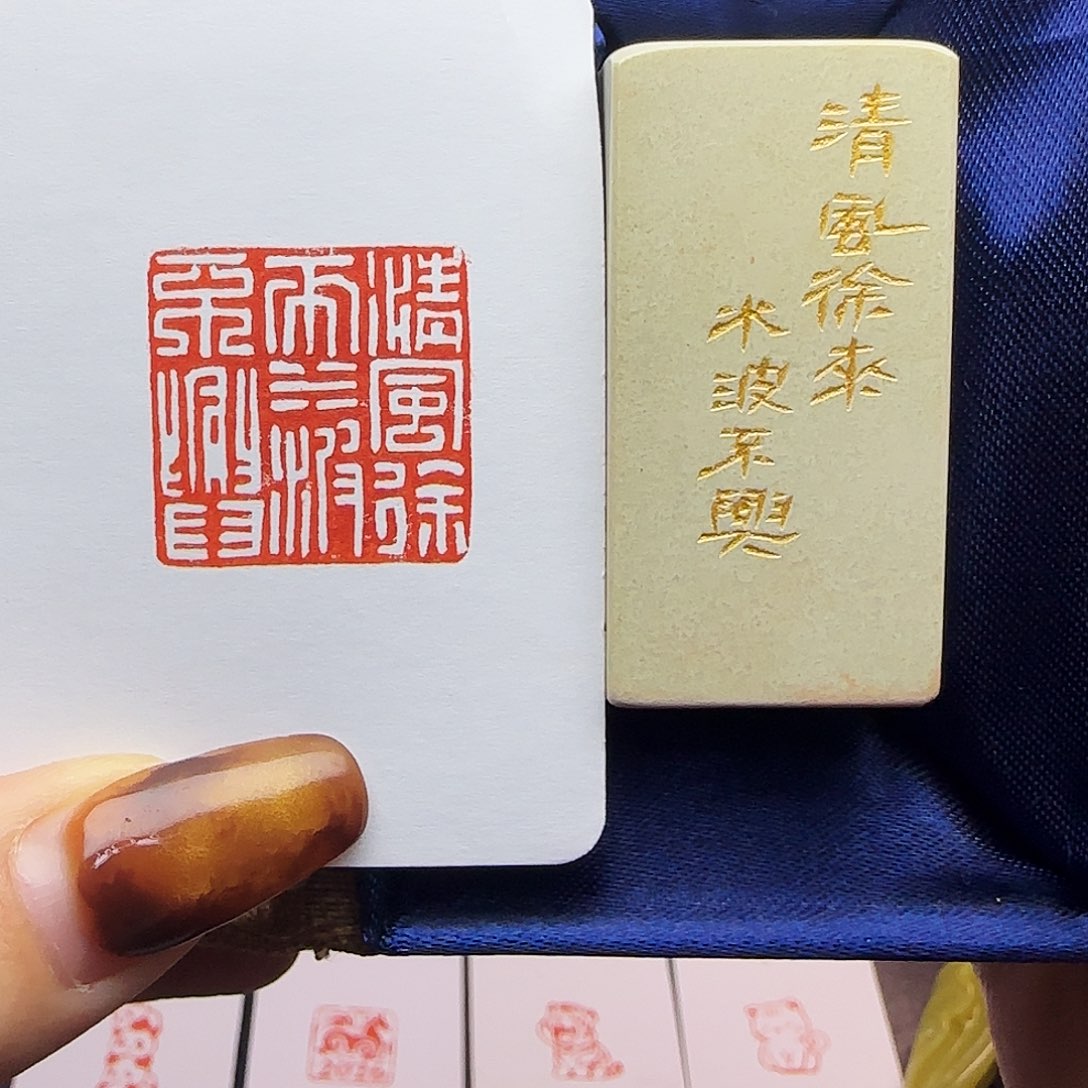 清風徐
來水波
不興
清風徐來
水波不興